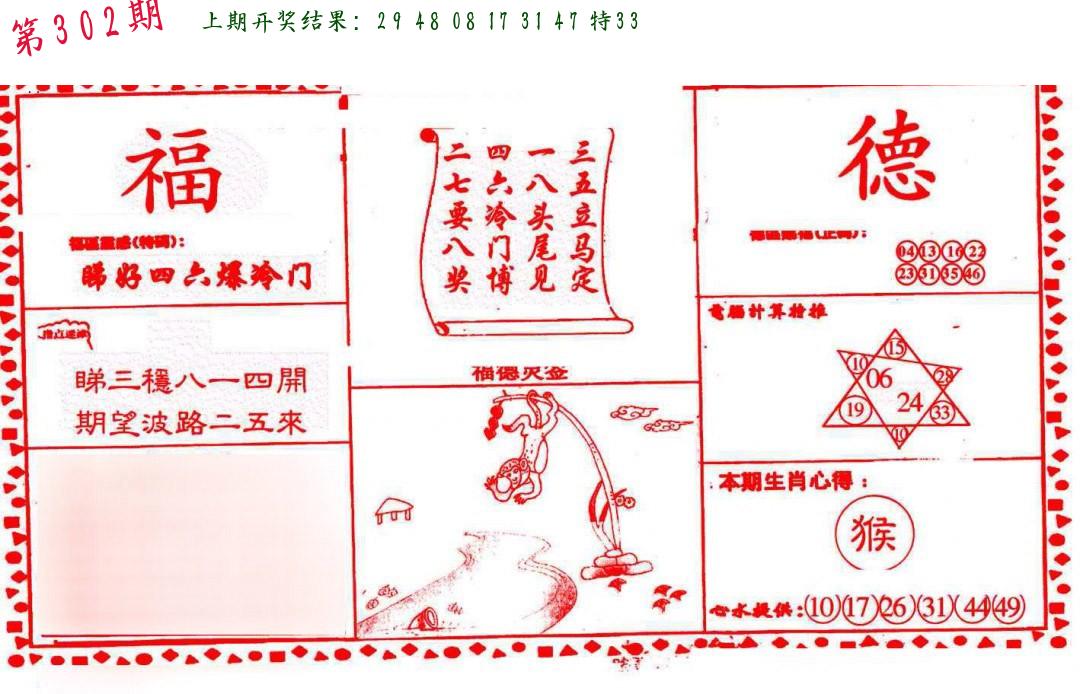 第302期
上期开奖结果: 29 48 08 17 31 47 特33
福
福區靈感(特码):
睇好四六爆冷门
睇三穩八一四開
期望波路二五來
三五立马定
一八头尾见
四六冷门博
二七要八奖
福德灵签
德
04 13 16 22
23 31 35 46
電腦計算榜推
15
10 28
06
24
19 33
10
本期生肖心得:
猴
心水提供:(10)(17)(26)(31)(44)(49)